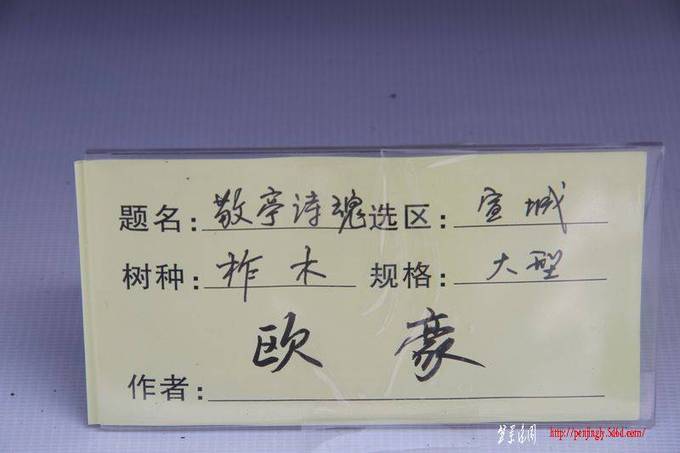 题名：敬亭诗魂 选区：宣城
树种：柞木 规格：大型
欧豪
作者：
http://penjingly.5dbd.com/